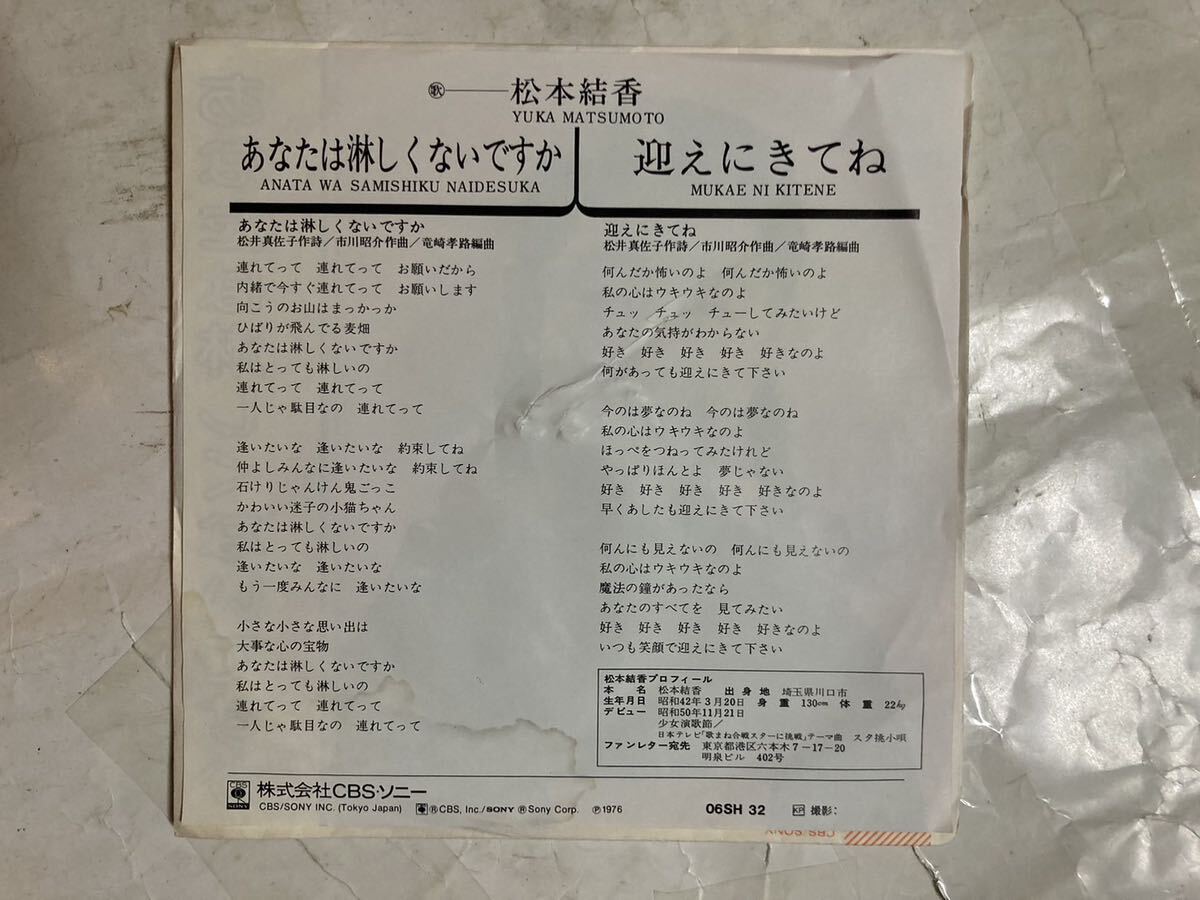 歌 松本結香
YUKA MATSUMOTO
あなたは淋しくないですか
ANATA WA SAMISHIKU NAIDESUKA
迎えにきてね
MUKAE NI KITENE
あなたは淋しくないですか
松井真佐子作詩/市川昭介作曲/竜崎孝路編曲
連れてって 連れてって お願いだから
内緒で今すぐ連れてって お願いします
向こうのお山はまっかっか
ひばりが飛んでる麦畑
あなたは淋しくないですか
私はとっても淋しいの
連れてって 連れてって
一人じゃ駄目なの 連れてって
逢いたいな 逢いたいな 約束してね
仲よしみんなに逢いたいな 約束してね
石けりじゃんけん鬼ごっこ
かわいい迷子の小猫ちゃん
あなたは淋しくないですか
私はとっても淋しいの
逢いたいな 逢いたいな
もう一度みんなに 逢いたいな
小さな小さな思い出は
大事な心の宝物
あなたは淋しくないですか
私はとっても淋しいの
連れてって 連れてって
一人じゃ駄目なの 連れてって
迎えにきてね
松井真佐子作詩/市川昭介作曲/竜崎孝路編曲
何んだか怖いのよ 何んだか怖いのよ
私の心はウキウキなのよ
チュッ チュッ チューしてみたいけど
あなたの気持がわからない
好き 好き 好き 好き 好きなのよ
何があっても迎えにきて下さい
今のは夢なのね 今のは夢なのね
私の心はウキウキなのよ
ほっぺをつねってみたけれど
やっぱりほんとよ 夢じゃない
好き 好き 好き 好き 好きなのよ
早くあしたも迎えにきて下さい
何んにも見えないの 何んにも見えないの
私の心はウキウキなのよ
魔法の鐘があったなら
あなたのすべてを 見てみたい
好き 好き 好き 好き 好きなのよ
いつも笑顔で迎えにきて下さい
松本結香プロフィール
本名 松本結香 出身地 埼玉県川口市
生年月日 昭和42年3月20日 身重 130cm 体重 22kg
デビュー 昭和50年11月21日
少女演歌節/
日本テレビ「歌まね合戦スターに挑戦」テーマ曲 スタ挑小唄
ファンレター宛先 東京都港区六本木7-17-20
明泉ビル 402号
CBS SONY 株式会社CBS・ソニー
CBS/SONY INC. (Tokyo Japan) ®CBS, Inc./SONY ® Sony Corp. ℗1976 06SH 32 KP 撮影:
CBS/SONY